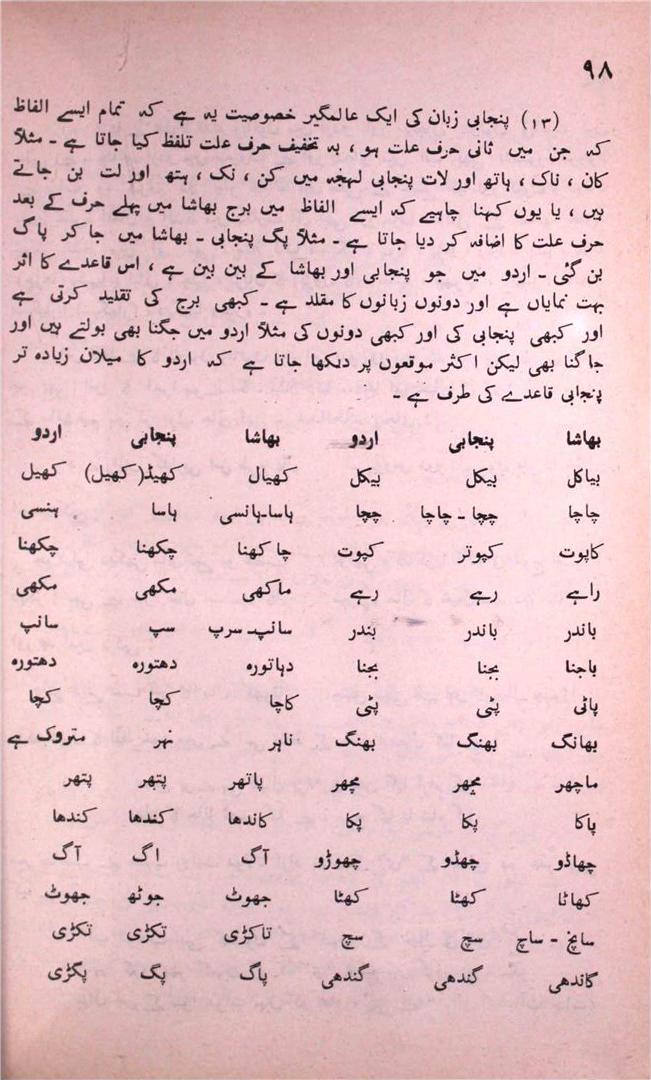 ۹۸
(۱۳) پنجابی زبان کی ایک عالمگیر خصوصیت یہ ہے کہ تمام ایسے الفاظ
کہ جن میں ثانی حرف علت ہو ، بہ تخفیف حرف علت تلفظ کیا جاتا ہے ـ مثلاً
کان ، ناک ، ہاتھ اور لات پنجابی لہجہ میں کن ، نک ، ہتھ اور لت بن جاتے
ہیں ، یا یوں کہنا چاہیے کہ ایسے الفاظ میں برج بھاشا میں پہلے حرف کے بعد
حرف علت کا اضافہ کر دیا جاتا ہے ـ مثلاً پگ پنجابی ـ بھاشا میں جا کر پاگ
بن گئی ـ اردو میں جو پنجابی اور بھاشا کے بین بین ہے ، اس قاعدے کا اثر
بہت نمایاں ہے اور دونوں زبانوں کا مقلد ہے ـ کبھی برج کی تقلید کرتی ہے
اور کبھی پنجابی کی اور کبھی دونوں کی مثلاً اردو میں جگنا بھی بولتے ہیں اور
جاگنا بھی لیکن اکثر موقعوں پر دیکھا جاتا ہے کہ اردو کا میلان زیادہ تر
پنجابی قاعدے کی طرف ہے ـ
بھاشا پنجابی اردو بھاشا پنجابی اردو
بیاکل بیکل بیکل کھیال کھیڈ(کھیل) کھیل
چاچا چچا ـ چاچا چچا ہاساـہانسی ہاسا ہنسی
کاپوت کپوتر کپوت چاکھنا چکھنا چکھنا
راہے رہے رہے ماکھی مکھی مکھی
باندر باندر بندر سانپـسرپ سپ سانپ
باجنا بجنا بجنا دہاتورہ دھتورہ دھتورہ
پاٹی پٹی پٹی کاچا کچا کچا
بھانگ بھنگ بھنگ ناہر نہر متروک ہے
ماچھر مچھر مچھر پاتھر پتھر پتھر
پاکا پکا پکا کاندھا کندھا کندھا
چھاڈو چھڈو چھوڑو آگ اگ آگ
کھاٹا کھٹا کھٹا جھوٹ جوٹھ جھوٹ
سانچ ـ ساچ سچ سچ تاکڑی تکڑی تکڑی
گاندھی گندھی گندھی پاگ پگ پگڑی